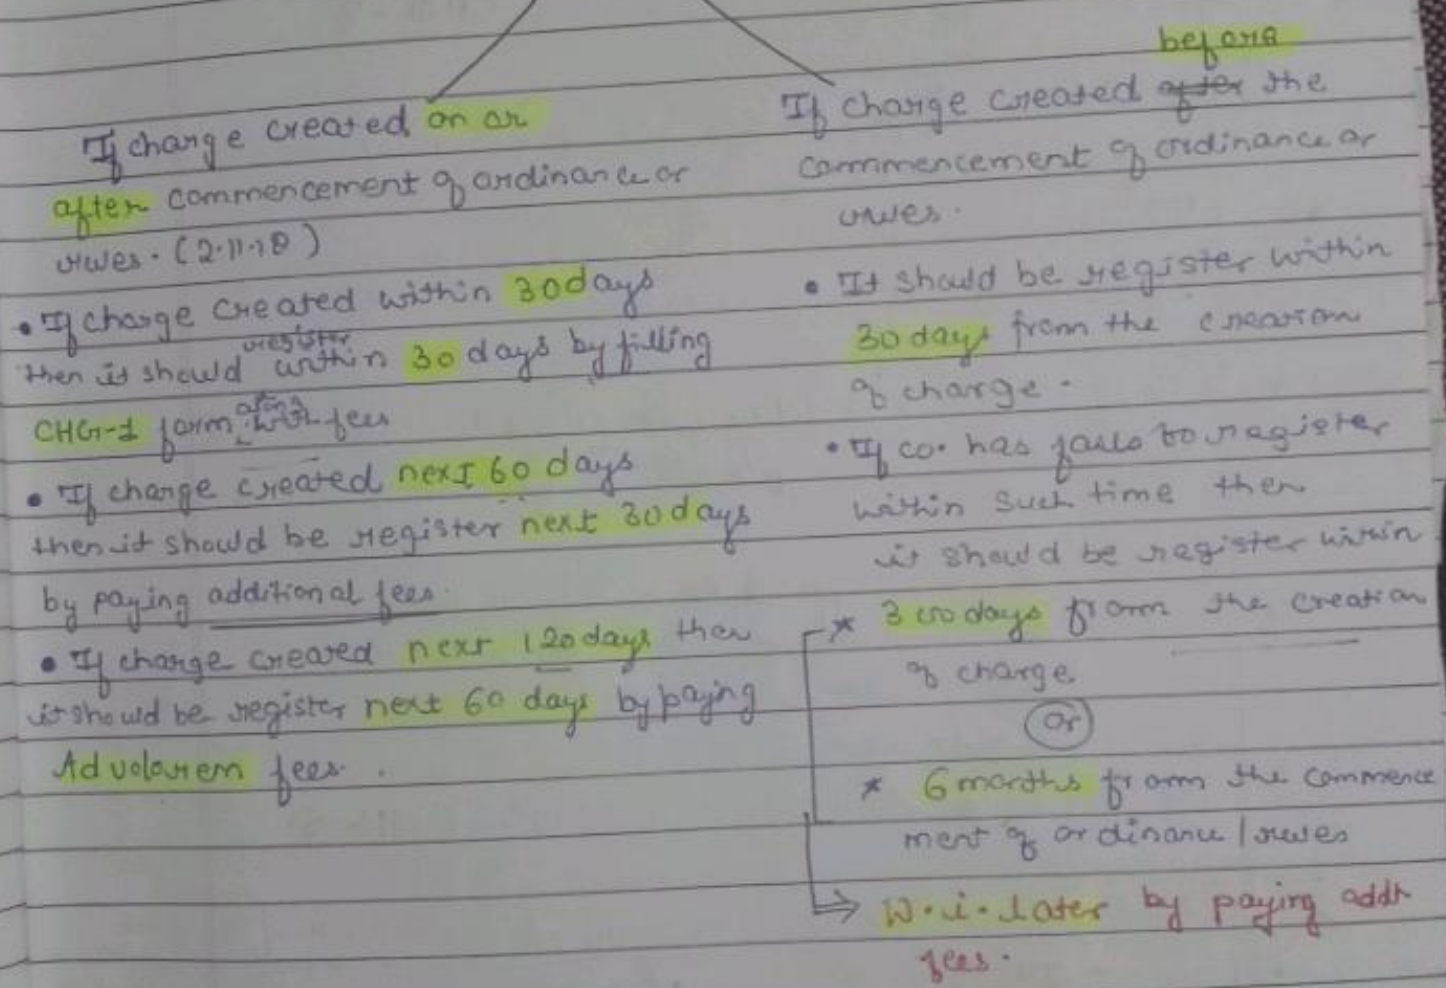 If charge created on or
after commencement of ordinance or
rules. (2.11.18)
• If charge created within 30days
register
then it should within 30 days by filling
along
CHG-1 form with fees
• If charge created next 60 days
then it should be register next 30 days
by paying additional fees.
• If charge created next 120 days then
it should be register next 60 days by paying
Ad valorem fees.
before
If charge created after the
commencement of ordinance or
rules.
• It should be register within
30 days from the creation
of charge.
• If co. has fails to register
within such time then
it should be register within
* 300 days from the creation
of charge
Or
* 6 months from the commence
ment of ordinance / rules
W.i.later by paying addn
fees.